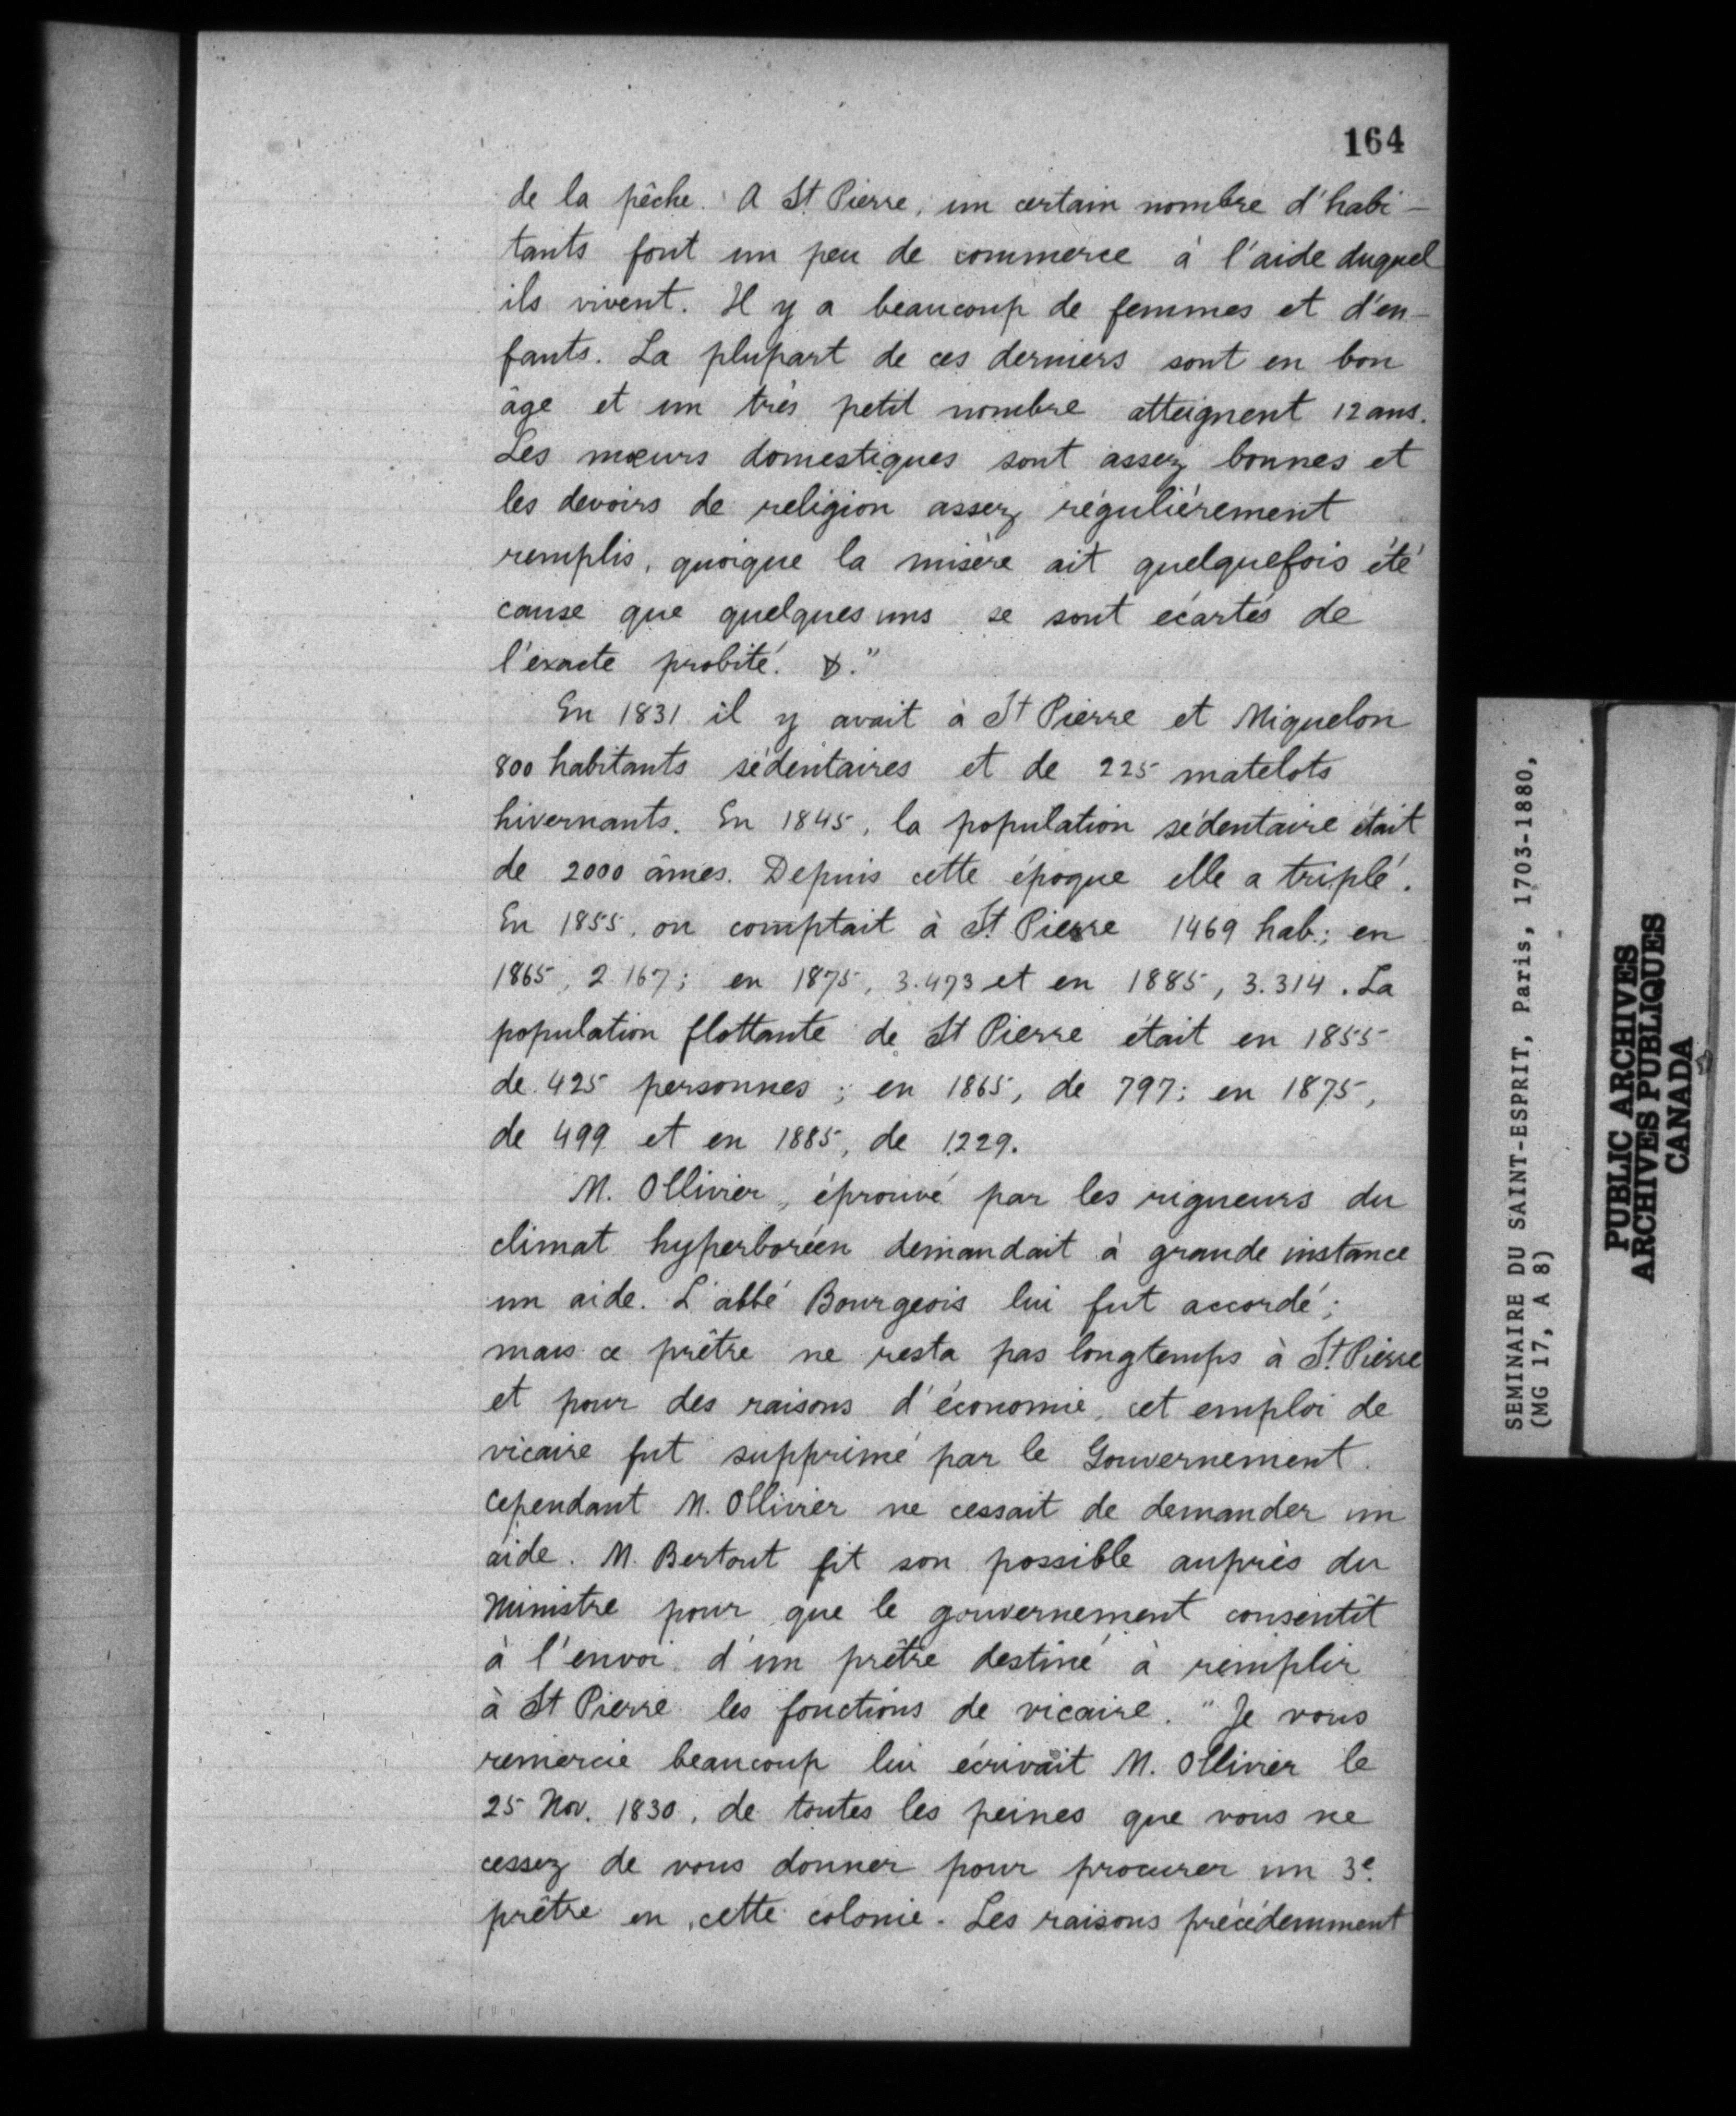 164
de la pêche. A St Pierre, un certain nombre d'habi-
tants font un peu de commerce à l'aide duquel
ils vivent. Il y a beaucoup de femmes et d'en-
fants. La plupart de ces derniers sont en bon
âge et un très petit nombre atteignent 12 ans.
Les mœurs domestiques sont assez bonnes et
les devoirs de religion assez régulièrement
remplis, quoique la misère ait quelquefois été
cause que quelques uns se sont écartés de
l'exacte probité. &."
En 1831 il y avait à St Pierre et Miquelon
800 habitants sédentaires et de 225 matelots
hivernants. En 1845, la population sédentaire était
de 2000 âmes. Depuis cette époque elle a triplé.
En 1855, on comptait à St. Pierre 1469 hab.; en
1865, 2.167; en 1875, 3.473 et en 1885, 3.314. La
population flottante de St Pierre était en 1855
de 425 personnes; en 1865, de 797; en 1875,
de 499 et en 1885, de 1229.
M. Ollivier, éprouvé par les rigueurs du
climat hyperboréen demandait à grande instance
un aide. L'abbé Bourgeois lui fut accordé;
mais ce prêtre ne resta pas longtemps à St. Pierre
et pour des raisons d'économie, cet emploi de
vicaire fut supprimé par le Gouvernement.
Cependant M. Ollivier ne cessait de demander un
aide. M. Bertout fit son possible auprès du
Ministre pour que le gouvernement consentît
à l'envoi d'un prêtre destiné à remplir
à St Pierre les fonctions de vicaire. "Je vous
remercie beaucoup lui écrivait M. Ollivier le
25 Nov. 1830, de toutes les peines que vous ne
cessez de vous donner pour procurer un 3e.
prêtre en cette colonie. Les raisons précédemment
SEMINAIRE DU SAINT-ESPRIT, Paris, 1703-1880,
(MG 17, A 8)
PUBLIC ARCHIVES
ARCHIVES PUBLIQUES
CANADA